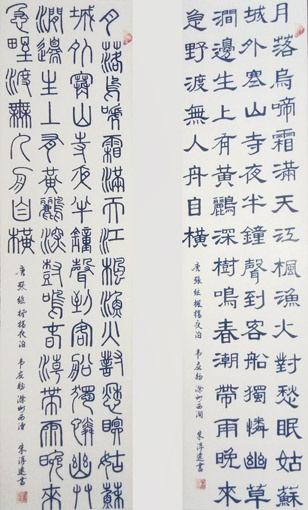 月落烏啼霜滿天江楓漁火對愁眠姑蘇
城外寒山寺夜半鐘聲到客船獨憐幽草
澗邊生上有黃鸝深樹鳴春潮帶雨晚來
急野渡無人舟自橫
唐張繼楓橋夜泊 韋應物滁州西澗 朱淳書
月落烏啼霜滿天江楓漁火對愁眠姑蘇
城外寒山寺夜半鐘聲到客船獨憐幽草
澗邊生上有黃鸝深樹鳴春潮帶雨晚來
急野渡無人舟自橫
唐張繼楓橋夜泊 韋應物滁州西澗 朱淳書